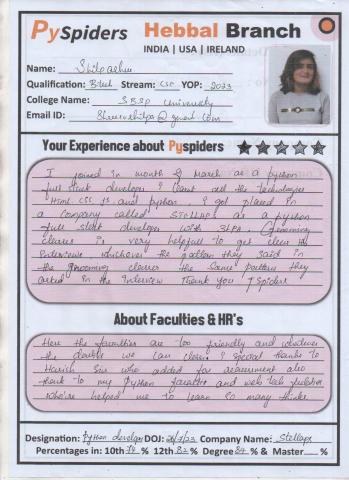 PySpiders Hebbal Branch
INDIA | USA | IRELAND
Name: Shilpashu
Qualification: B.tech Stream: CSE YOP: 2023
College Name: SBSP University
Email ID:
Your Experience about Pyspiders
I joined in month of March as a python
full stack developer I learnt all the technologies
Html, CSS, JS and python. I got placed in
a company called STELLAPS as a python
full stack developer with 3LPA. Grooming
classes is very helpfull to get clear the
Interviews whichever the pattern they said in
the grooming classes the same pattern they
asked in the Interview Thank you PSpiders
About Faculties & HR's
Here the faculties are too friendly and whatever
the doubts we can clear. I special thanks to
Harish Sir who added for assessment also
thank to my Python faculties and web tech faculties
who're helped me to learn so many thinks.
Designation: Python developer DOJ: 26/7/23 Company Name: Stellaps
Percentages in: 10th % 12th 82 % Degree % & Master %